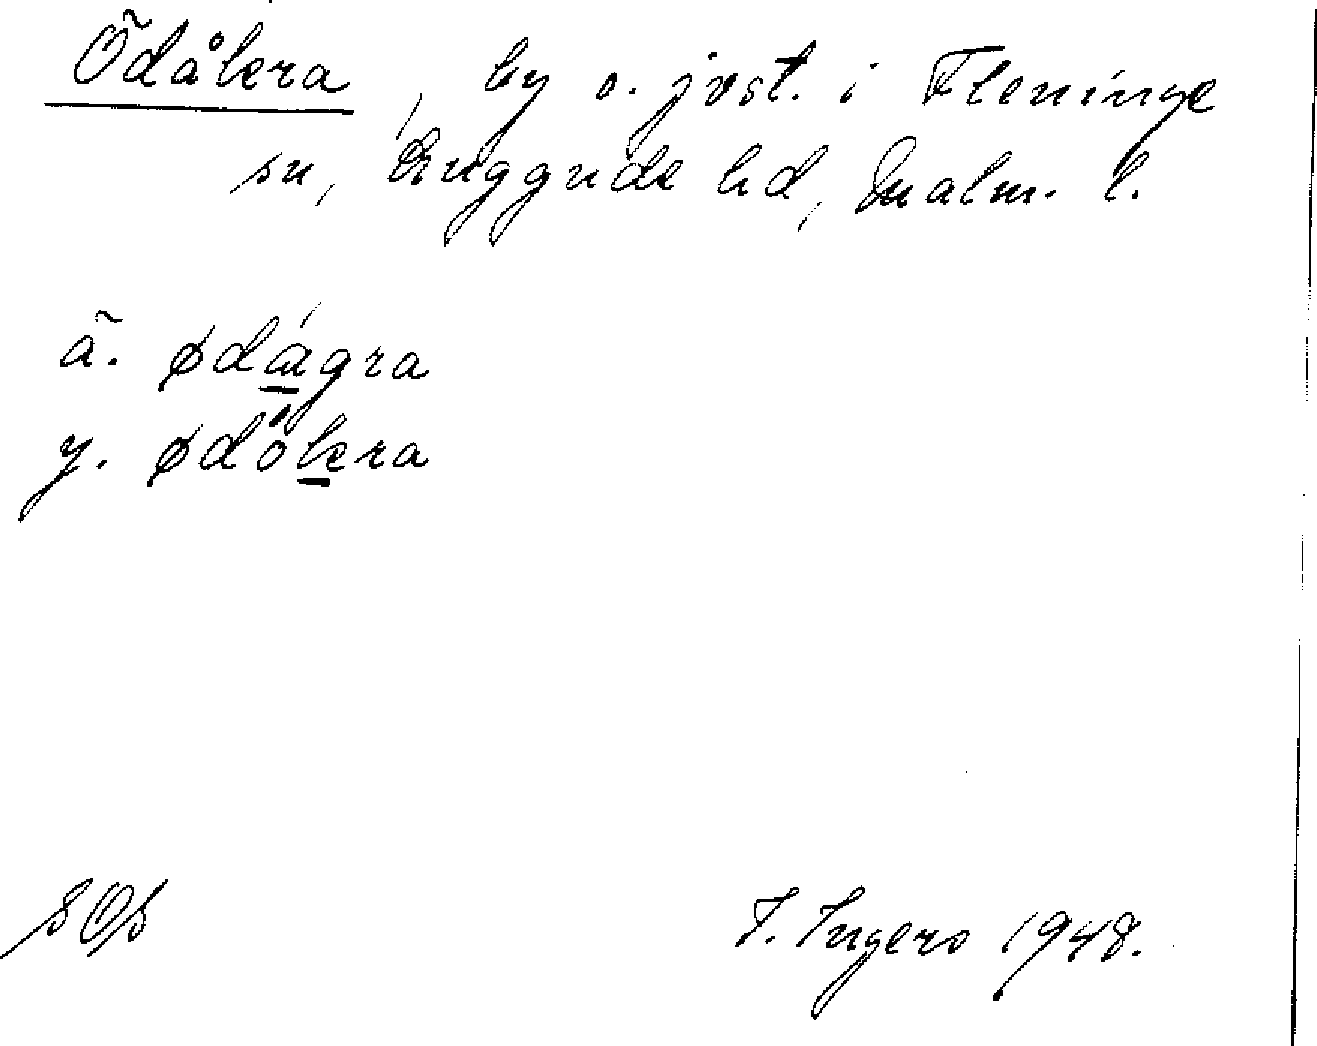 Ödåkra, by o. jvst. i Fleninge
sn, Luggude hd, Malm. l.
ä. ødágra
y. ødǻkra
SOS
I. Ingers 1948.